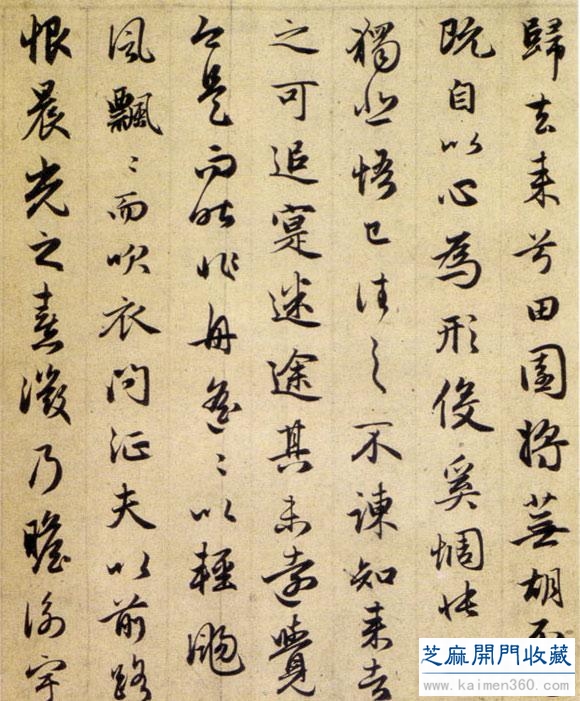 歸去来兮田園将蕪胡不
既自以心為形役奚惆悵
獨悲悟已往之不諫知来者
之可追寔迷途其未遠覺
今是而昨非舟遥〻以輕颺
風飄〻而吹衣問征夫以前路
恨晨光之熹微乃瞻衡宇
芝麻開門收藏
www.kaimen360.com